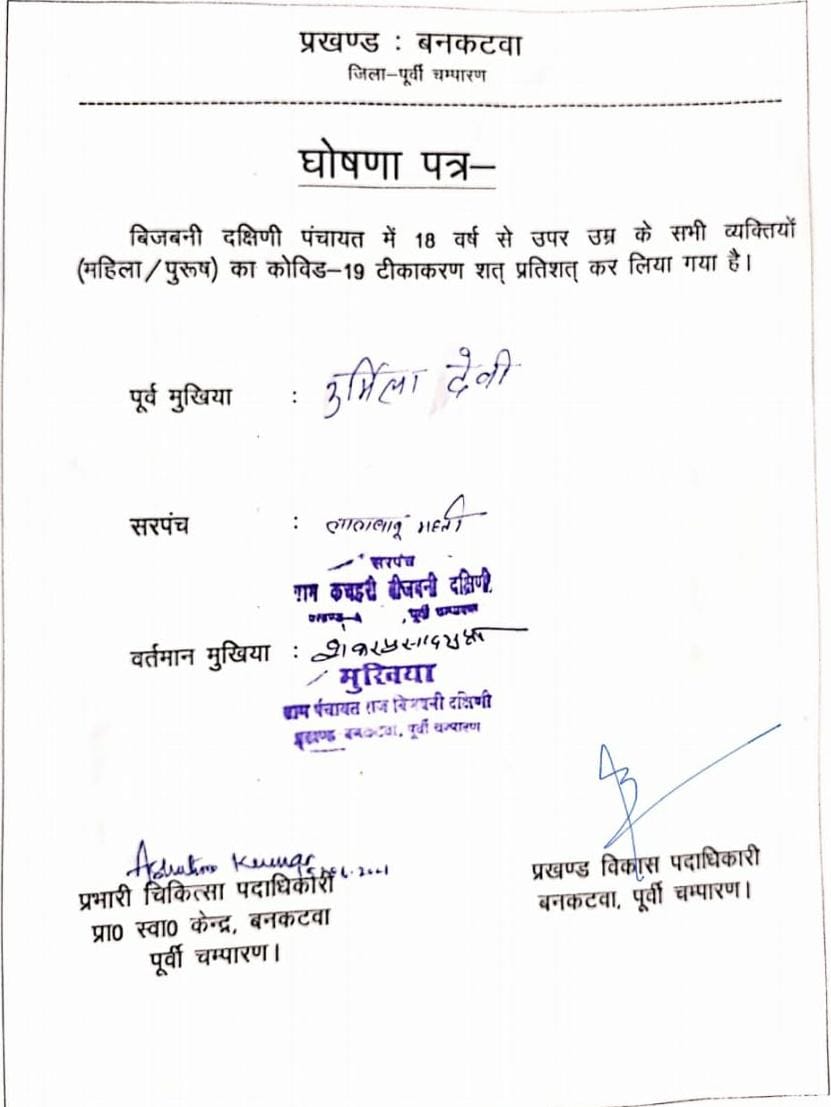 प्रखण्ड : बनकटवा
जिला–पूर्वी चम्पारण
घोषणा पत्र–
बिजबनी दक्षिणी पंचायत में 18 वर्ष से उपर उम्र के सभी व्यक्तियों
(महिला/पुरूष) का कोविड–19 टीकाकरण शत् प्रतिशत् कर लिया गया है।
पूर्व मुखिया : उर्मिला देवी
सरपंच :
सरपंच
ग्राम कचहरी बीजबनी दक्षिणी
पूर्वी चम्पारण
वर्तमान मुखिया :
मुखिया
ग्राम पंचायत राज बिजबनी दक्षिणी
प्रखण्ड बनकटवा, पूर्वी चम्पारण
Kumar
प्रभारी चिकित्सा पदाधिकारी
प्रा0 स्वा0 केन्द्र, बनकटवा
पूर्वी चम्पारण।
प्रखण्ड विकास पदाधिकारी
बनकटवा, पूर्वी चम्पारण।